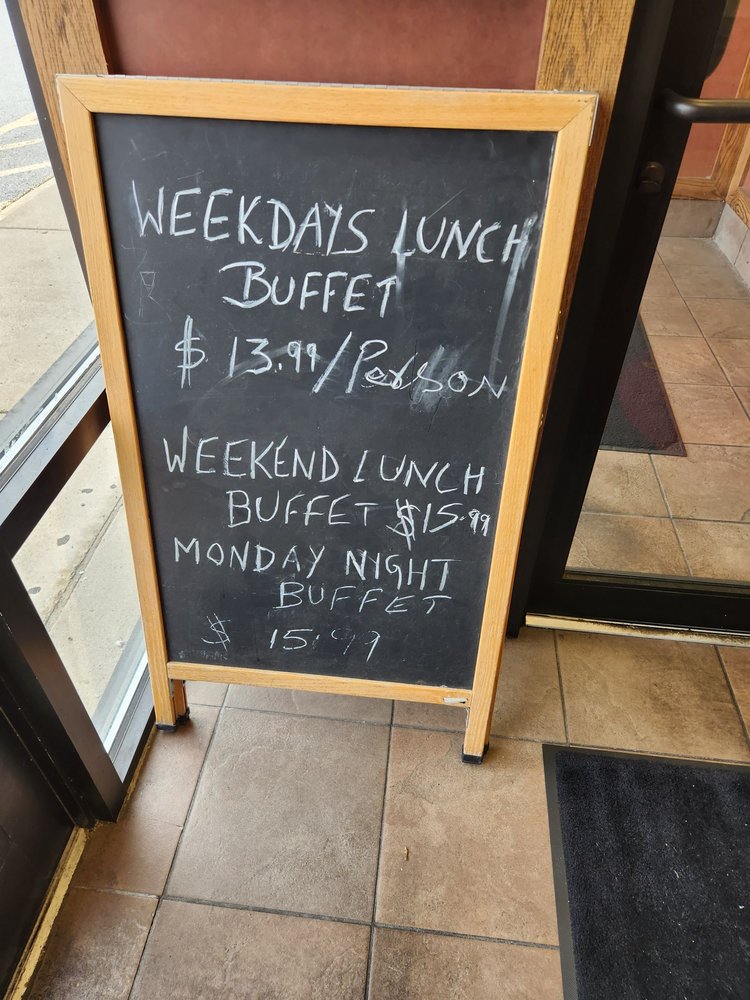 WEEKDAYS LUNCH
BUFFET
$ 13.99/Person
WEEKEND LUNCH
BUFFET $15.99
MONDAY NIGHT
BUFFET
$ 15.99